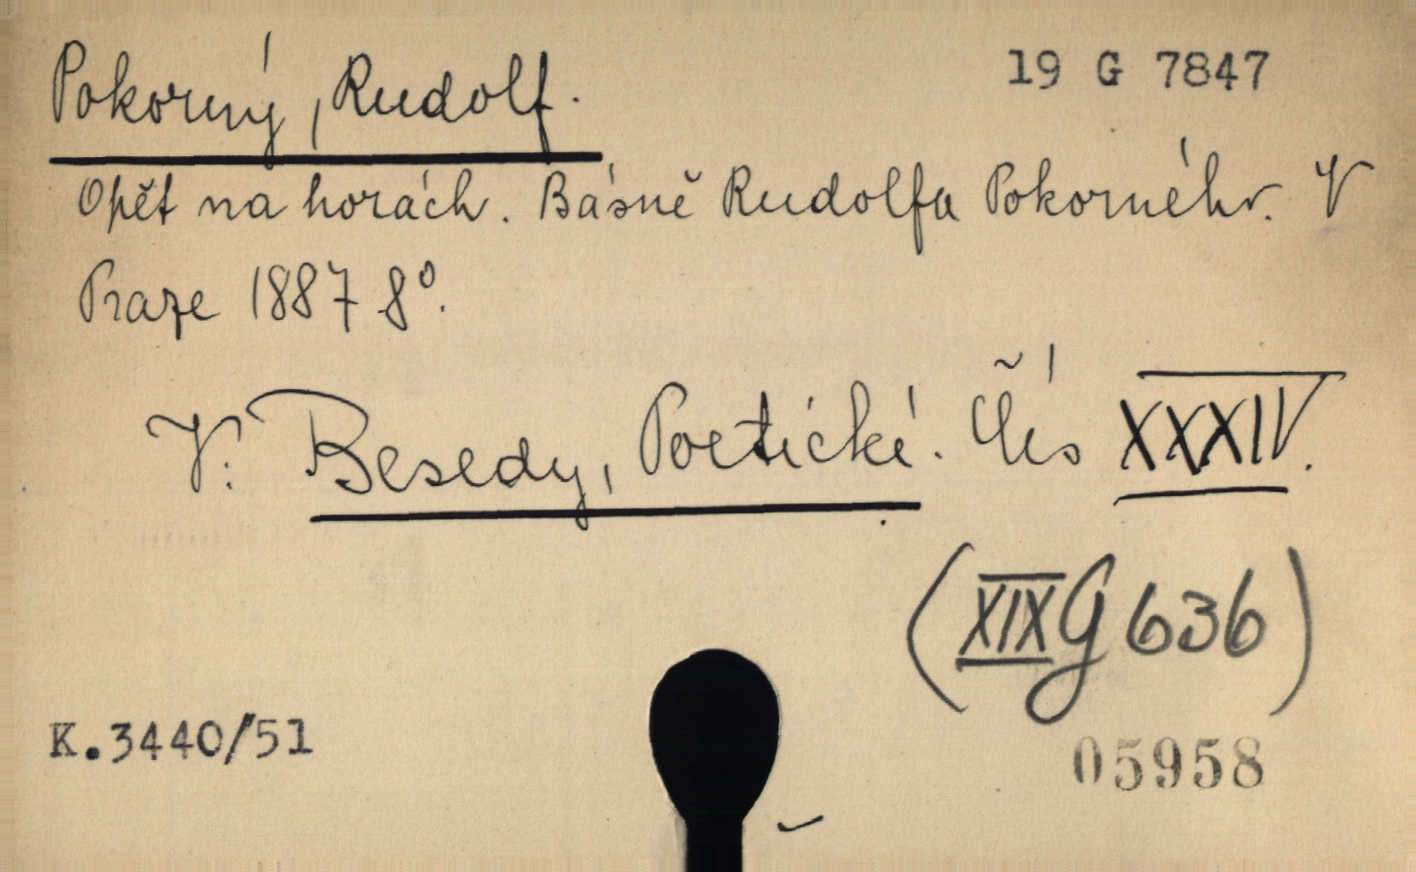 Pokorný, Rudolf.
19 G 7847
Opět na horách. Básně Rudolfa Pokorného. V
Praze 1887 8º.
V: Besedy, Poetické. Čís XXXIV.
(XIX G 636)
K.3440/51
05958